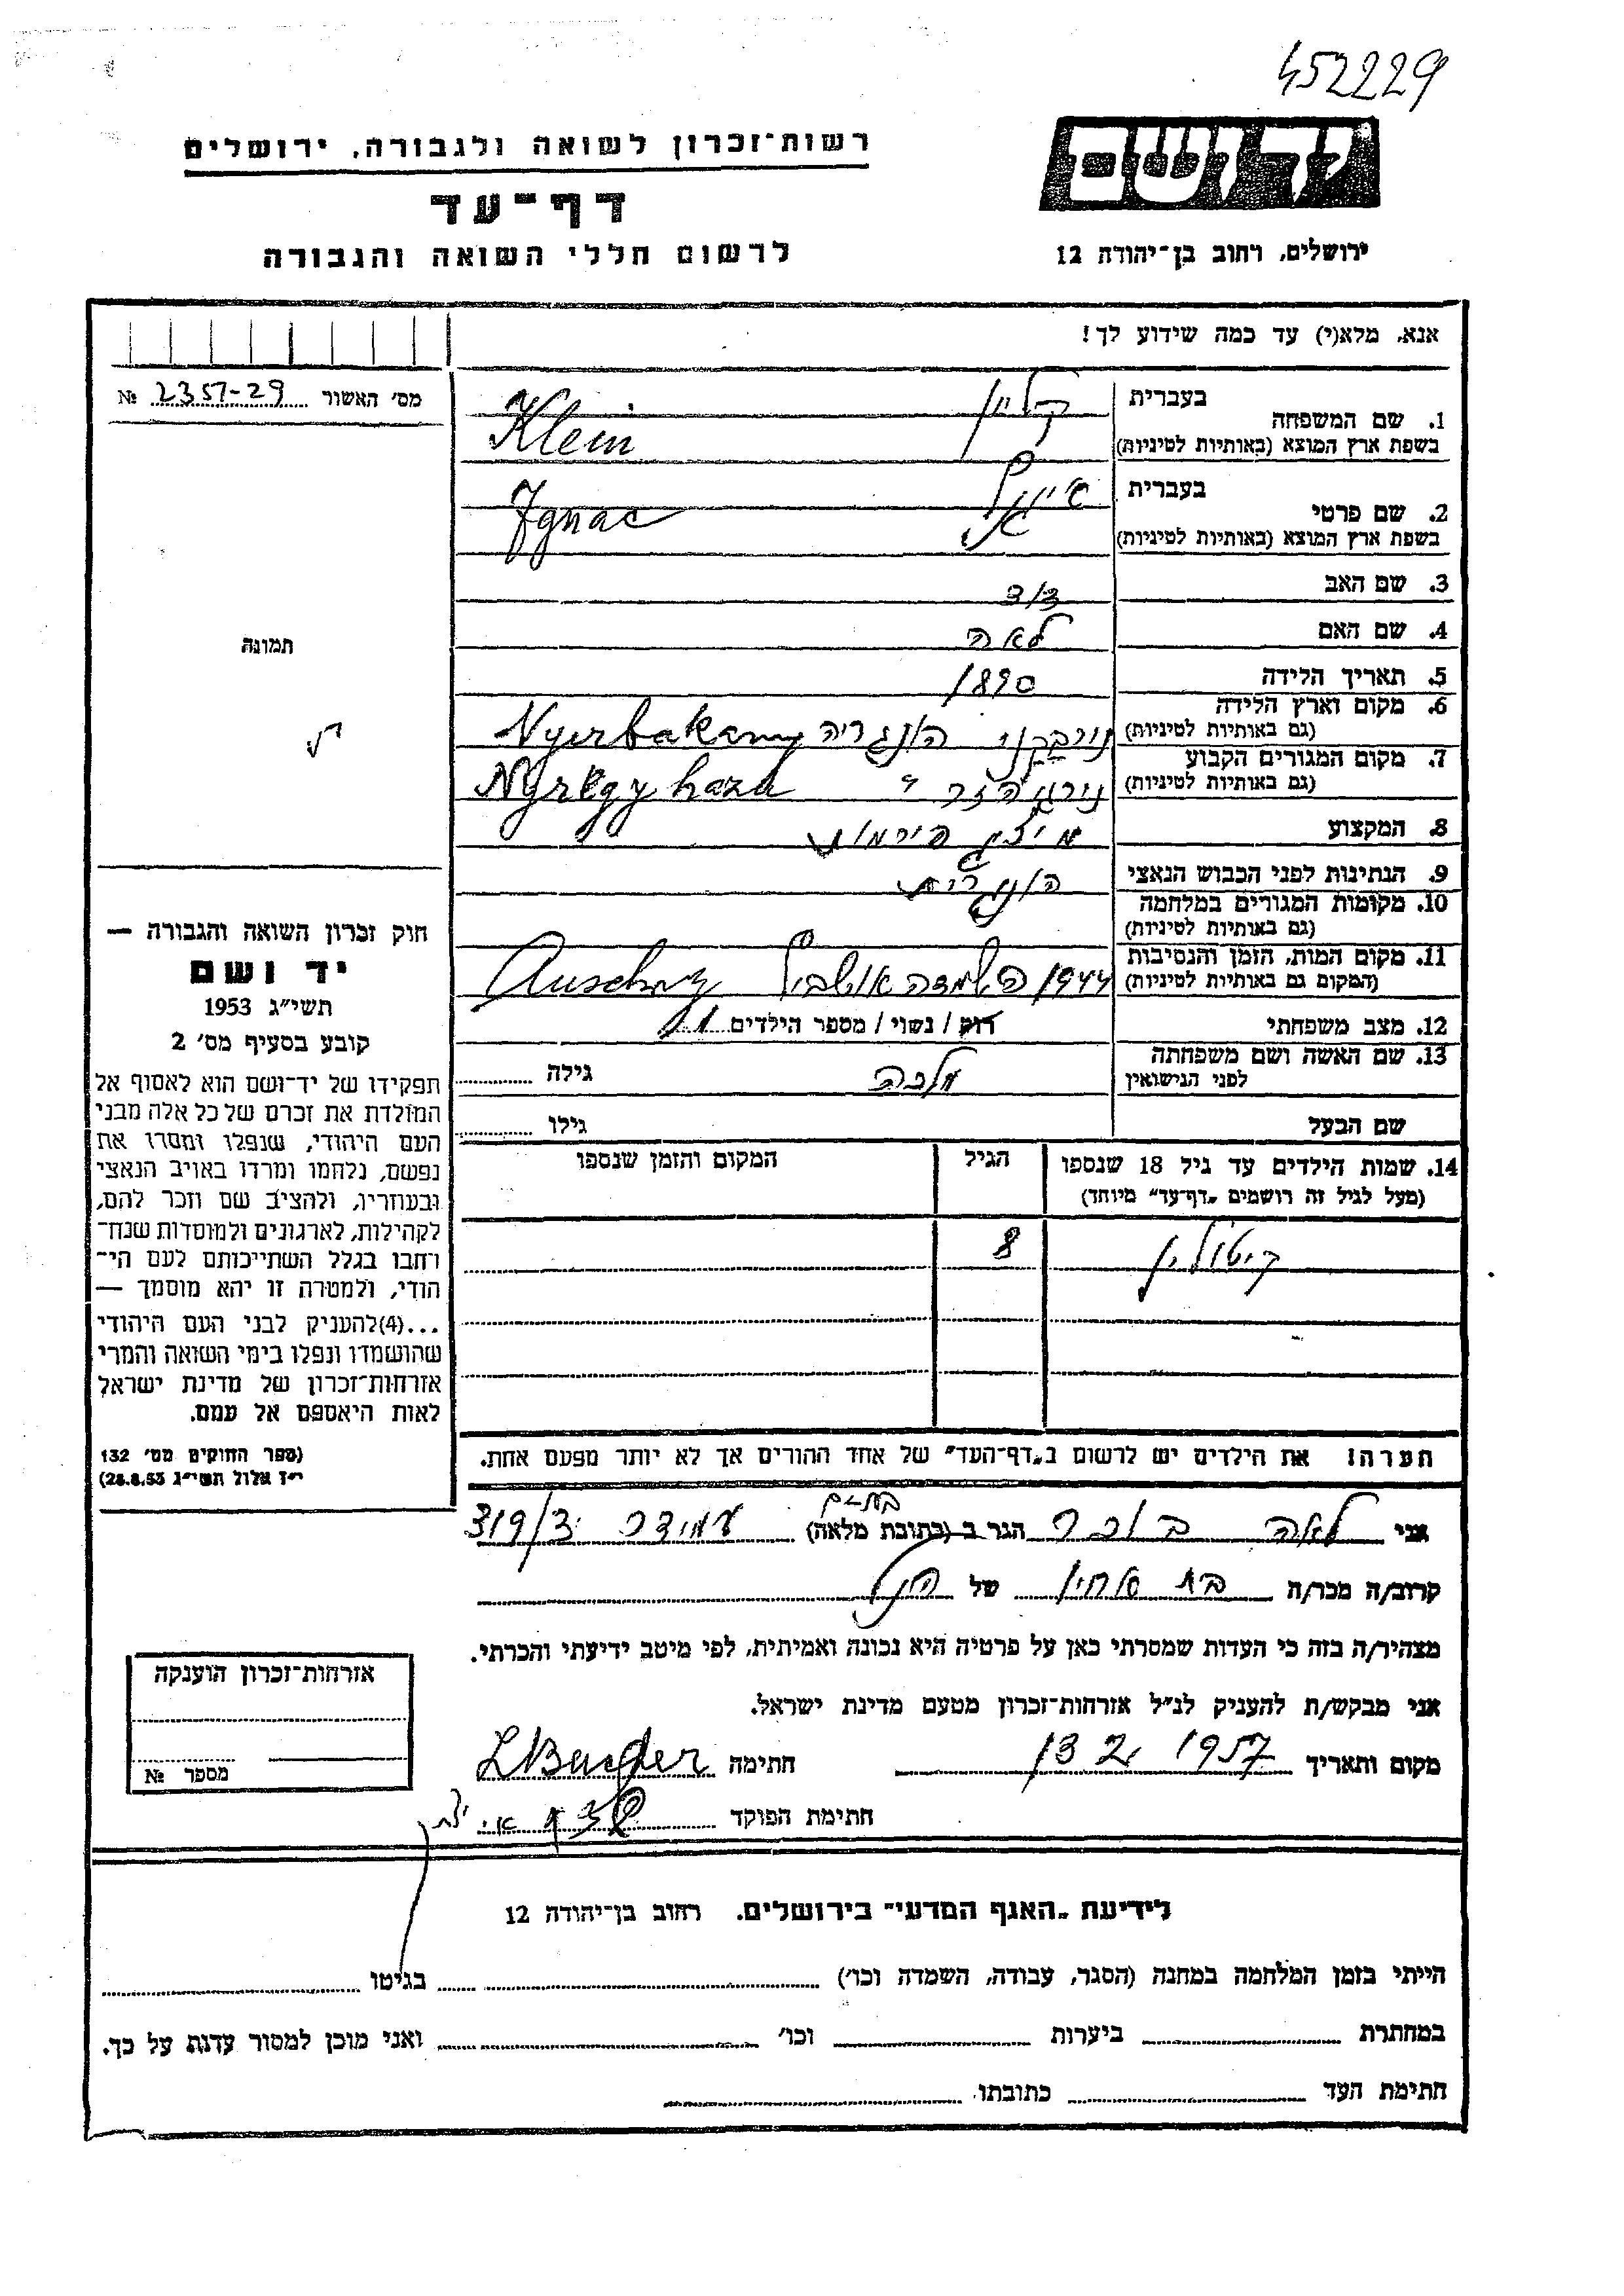 452229
יד ושם
רשות־זכרון לשואה ולגבורה, ירושלים
דף־עד
לרשום חללי השואה והגבורה
ירושלים, רחוב בן־יהודה 12
אנא, מלא(י) עד כמה שידוע לך!
מס׳ האשור № 2357-29
תמונה
חוק זכרון השואה והגבורה —
יד ושם
תשי״ג 1953
קובע בסעיף מס׳ 2
תפקידו של יד־ושם הוא לאסוף אל
המולדת את זכרם של כל אלה מבני
העם היהודי, שנפלו ומסרו את
נפשם, נלחמו ומרדו באויב הנאצי
ובעוזריו, ולהציב שם וזכר להם,
לקהילות, לארגונים ולמוסדות שנח־
רחבו בגלל השתייכותם לעם הי־
הודי, ולמטרה זו יהא מוסמך —
...(4)להעניק לבני העם היהודי
שהושמדו ונפלו בימי השואה והמרי
אזרחות־זכרון של מדינת ישראל
לאות היאספם אל עמם.
(ספר החוקים מס׳ 132
י״ז אלול תשי״ג 28.8.53)
1. שם המשפחה
בעברית קליין
בשפת ארץ המוצא (באותיות לטיניות) Klein
2. שם פרטי
בעברית
בשפת ארץ המוצא (באותיות לטיניות) Ignac
3. שם האב
4. שם האם לאה
5. תאריך הלידה 1890
6. מקום וארץ הלידה
(גם באותיות לטיניות) נירבקני הונגריה Nyirbakamy
7. מקום המגורים הקבוע
(גם באותיות לטיניות) " Nyregyhaza
8. המקצוע
9. הנתינות לפני הכבוש הנאצי הונגרית
10. מקומות המגורים במלחמה
(גם באותיות לטיניות)
11. מקום המות, הזמן והנסיבות
(המקום גם באותיות לטיניות) 1944 השמדה Auschwz
12. מצב משפחתי רווק / נשוי / מספר הילדים 1
13. שם האשה ושם משפחתה
לפני הנישואין מלכה גילה
שם הבעל גילו
14. שמות הילדים עד גיל 18 שנספו
(מעל לגיל זה רושמים „דף־עד״ מיוחד)
הגיל
המקום והזמן שנספו
8
הערה! את הילדים יש לרשום ב„דף־העד״ של אחד ההורים אך לא יותר מפעם אחת.
בת-ים
אני לאה בוכר הגר ב (כתובת מלאה) עמידר 319/3
קרוב/ה מכר/ה בת אחין של הנ״ל
מצהיר/ה בזה כי העדות שמסרתי כאן על פרטיה היא נכונה ואמיתית, לפי מיטב ידיעתי והכרתי.
אני מבקש/ת להעניק לנ״ל אזרחות־זכרון מטעם מדינת ישראל.
מקום ותאריך 13 2. 1957 חתימה
חתימת הפוקד
אזרחות־זכרון הוענקה
מספר №
לידיעת „האגף המדעי״ בירושלים. רחוב בן־יהודה 12
הייתי בזמן המלחמה במחנה (הסגר, עבודה, השמדה וכו׳) בגיטו
במחתרת ביערות וכו׳ ואני מוכן למסור עדות על כך.
חתימת העד כתובתו